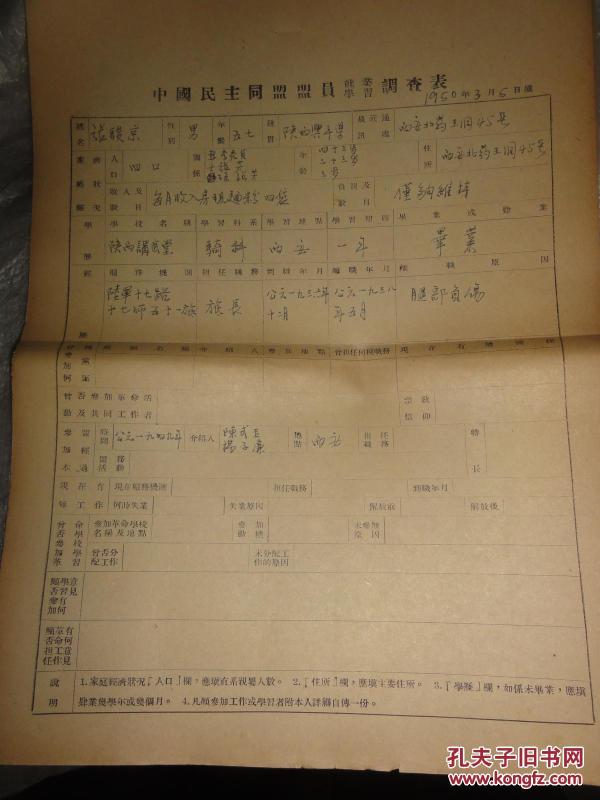 中國民主同盟盟員就業學習調查表
1950年3月5日填
姓名 張駿京 性別 男 年齡 五七 籍貫 陝西興平縣 最近通訊處 西安北药王洞45号
家庭經濟狀況 人口 四口 關係 年齡 四十三岁 二十三岁 三岁 住所 西安北药王洞45号
收入及數目 每月收入房租麵粉四袋 負担及數目 僅夠維持
學歷 學校名稱 學習科系 學習地點 學習期間 畢業或肄業
陝西講武堂 騎科 西安 一年 畢業
經歷 服務機關 担任職務 到職年月 離職年月 離職原因
陸軍十七路十七师五十一旅 旅長 公元一九三六年十二月 公元一九三八年五月 腿部負傷
曾參加何黨派 黨派名稱 介紹人 參加地點 曾担任何種職務 現在有無關係
曾否參加革命活動及共同工作者 宗教信仰
參加本盟經過 時間 公元一九四九年 介紹人 陳式玉 楊子廉 地點 西安 担任職務 特長
盟務活動
現在有無工作 現在服務機關 担任職務 到職年月
何時失業 失業原因 解放前 解放後
曾否參加革命學校學習 參加革命學校名稱及地點 參加動機 未參加原因
曾否分配工作 未分配工作的原因
願否參加學習有何意見
願否担任革命工作有何意見
說明 1.家庭經濟狀況「人口」欄，應填直系親屬人數。 2.「住所」欄，應填主要住所。 3.「學歷」欄，如係未畢業，應填
肄業幾學年或幾個月。 4.凡願參加工作或學習者附本人詳細自傳一份。
孔夫子旧书网
www.kongfz.com